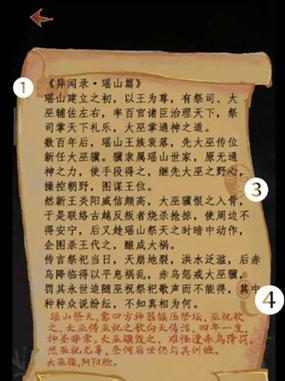 1
《异闻录·瑶山篇》
瑶山建立之初，以王为尊，有祭司、大
巫辅佐左右，率百官诸臣治理天下，祭
司掌天下礼乐，大巫掌通神之道。
数百年后，瑶山王族衰落，先大巫传位
新任大巫骥。骥隶属瑶山世家，原无通
神之力，使手段得之，继先大巫之野心，
操控朝野，图谋王位。
然新王炎阳威信颇高，大巫骥恨之入骨，
于是联络古越反叛者烧杀抢掠，使周边不
得安宁，后又趁瑶山祭天之时暗中动作，
企图杀王代之，酿成大祸。
传言祭祀当日，天崩地裂，洪水泛滥，后赤
乌降临得以平息祸乱，赤乌怨戒大巫骥，
罚其永世追随巫祝祭祀歌声而不能得，其中
种种众说纷纭，不知真相为何。
3
4
瑶山祭天，常四方神器镇压祭坛，巫祝歌
之，大巫借巫祝之歌向天传话，四年一度，
神圣非常。大巫骥毁之，难怪遭赤乌降罚。
然巫祝无辜，奈何后世仍与其纠缠。
大巫骥，阿阳脸。